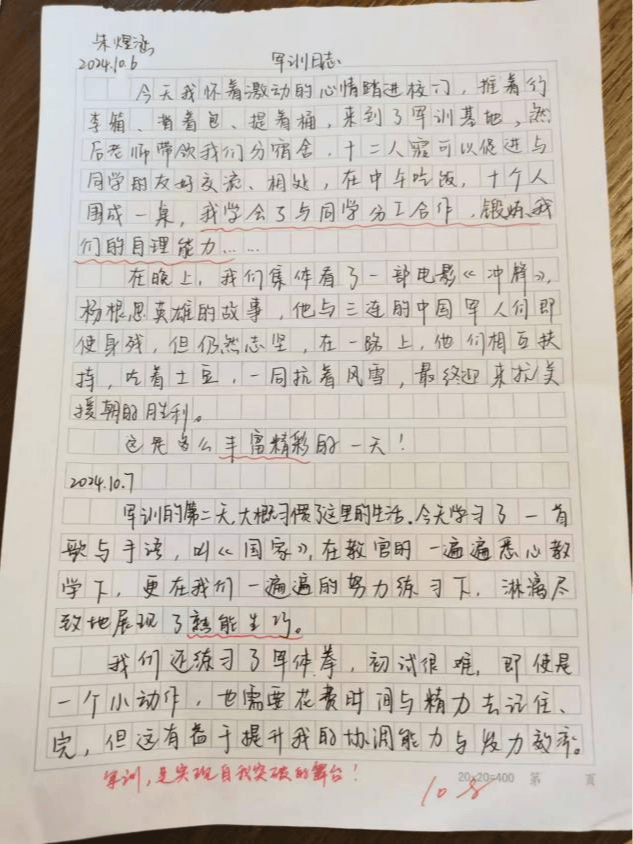 朱煜涵
2024.10.6
军训日志
今天我怀着激动的心情踏进校门，推着行
李箱、背着包、提着桶，来到了军训基地，然
后老师带领我们分宿舍，十二人寝可以促进与
同学的友好交流、相处，在中午吃饭，十个人
围成一桌，我学会了与同学分工合作，锻炼我
们的自理能力……
在晚上，我们集体看了一部电影《冲锋》，
杨根思英雄的故事，他与三连的中国军人们即
使身残，但仍然志坚，在一路上，他们相互扶
持，吃着土豆，一同抗着风雪，最终迎来抗美
援朝的胜利。
这是多么丰富精彩的一天！
2024.10.7
军训的第二天，大概习惯了这里的生活。今天学习了一首
歌与手语，叫《国家》，在教官的一遍遍悉心教
学下，更在我们一遍遍的努力练习下，淋漓尽
致地展现了熟能生巧。
我们还练习了军体拳，初试很难，即使是
一个小动作，也需要花费时间与精力去记住、
完，但这有益于提升我的协调能力与发力效率。
军训，是实现自我突破的舞台！
20×20=400 第 页
10.8